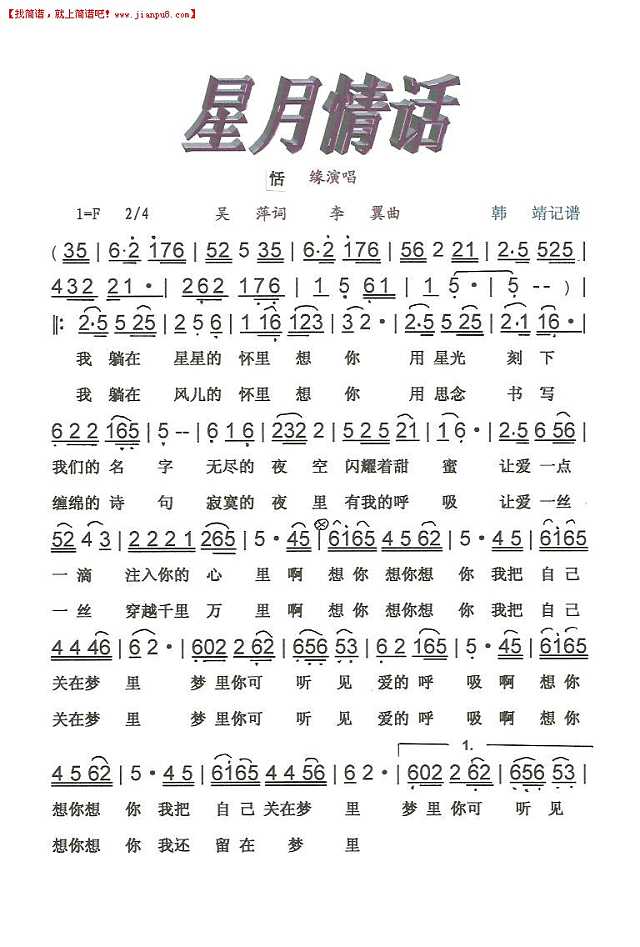 【找简谱，就上简谱吧！www.jianpu8.com】
星月情话
恬 缘演唱
1=F 2/4 吴 萍词 李 翼曲 韩 靖记谱
( 35 | 6·2 176 | 52 35 | 6·2 176 | 562 21 | 2·5 525 |
432 221· | 262 176· | 1 5 61 | 1 5· | 5 -- ) |
‖: 2·5 5 25 | 2 5 6 | 1 16 123 | 32· | 2·5 525 | 2·1 16· |
我 躺在 星星的 怀里 想 你 用 星光 刻 下
我 躺在 风儿的 怀里 想 你 用 思念 书 写
622 165 | 5 -- | 616 232 | 2525 21 | 16· | 2·5 656 |
我们的 名 字 无尽的 夜 空 闪耀着甜 蜜 让爱 一点
缠绵的 诗 句 寂寞的 夜 里 有我的呼 吸 让爱 一丝
52 43 | 2221 265 | 5· 45 | 6165 4562 | 5· 45 | 6165
一 滴 注入你的 心 里 啊 想 你 想你想 你 我把 自己
一 丝 穿越千里 万 里 啊 想 你 想你想 你 我把 自己
4446 | 62· | 602 262 | 656 53 | 62 165 | 5· 45 | 6165
关在梦 里 梦 里你可 听 见 爱的 呼 吸 啊 想你
关在梦 里 梦 里你可 听 见 爱的 呼 吸 啊 想你
1.
4562 | 5· 45 | 6165 4456 | 62· | 602 262 | 656 53 |
想你想 你 我把 自己 关在梦 里 梦 里你可 听 见
想你想 你 我还 留 在 梦 里